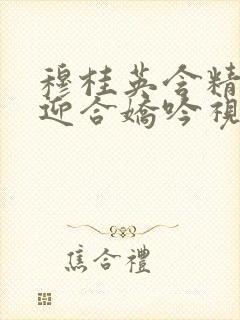 穆桂英含精
迎合嬌吟視
焦合禮